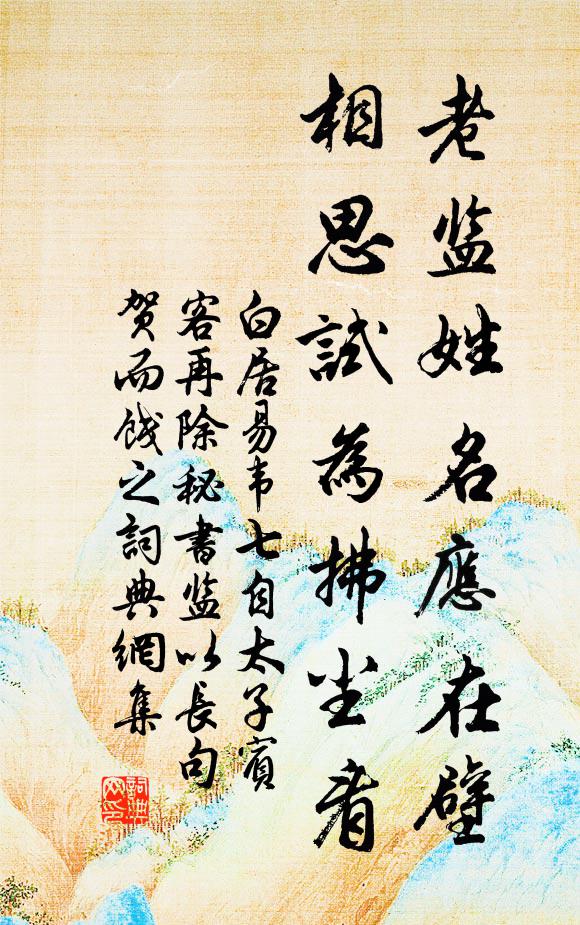 老监姓名應在壁
相思試為拂尘看
白居易韦七自太子賓
客再除秘書监以長句
贺而饯之詞典網集